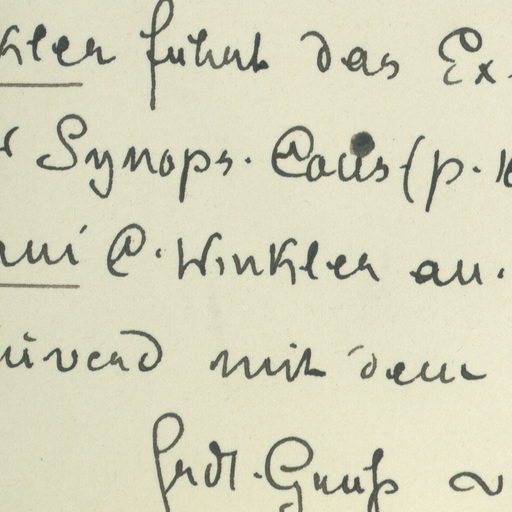 kler führt das Ex.
r Synops. Cous (p. 1
nni C. Winkler an.
mit dem
frdl. Gruß